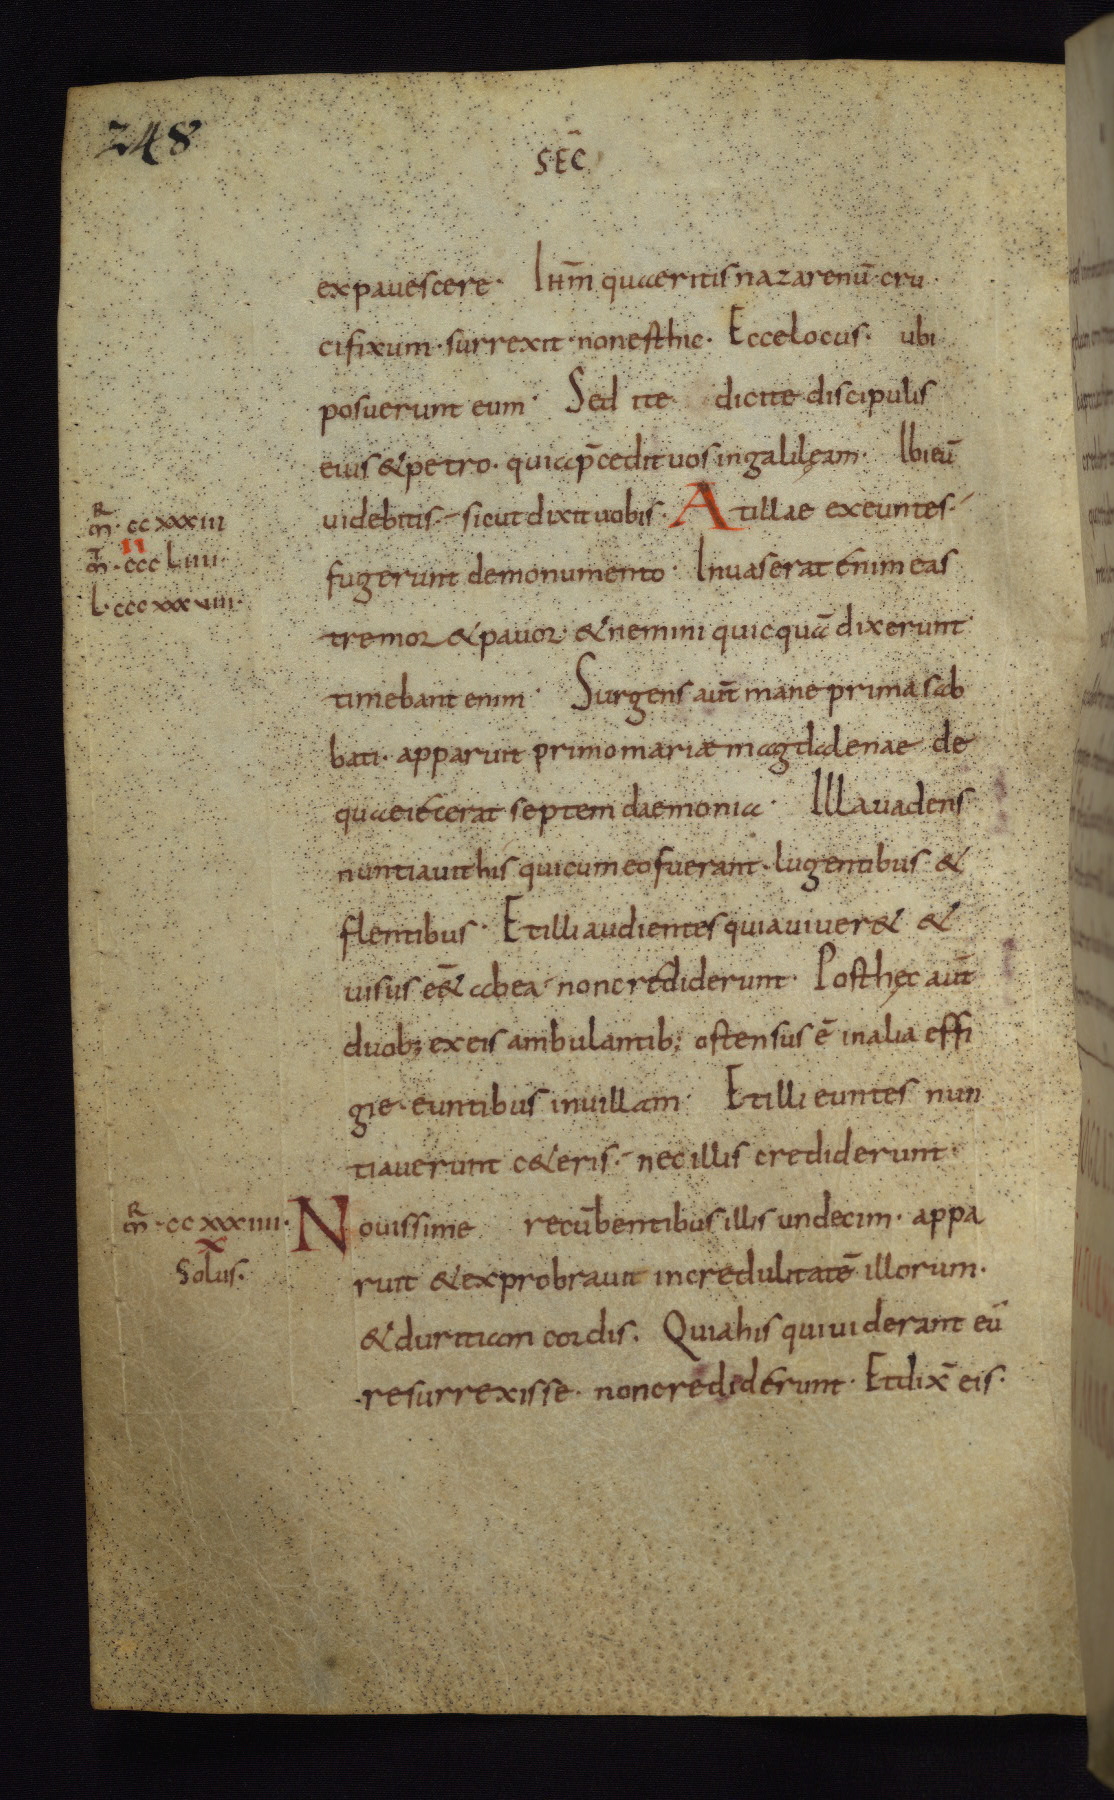 248
SEC̄
expauescere· Ihm̄ quaeritis nazarenū· cru
cifixum· surrexit· non est hic· Ecce locus· ubi
posuerunt eum· Sed ite dicite discipulis
eius & petro· quia p̄cedit uos in galilęam· Ibi eū
uidebitis· sicut dixit uobis· At illae exeuntes·
fugerunt de monumento· Inuaserat enim eas
tremor & pauor· & nemini quicquā dixerunt·
timebant enim· Surgens aut̄ mane prima sab
bati· apparuit primo mariae magdalenae de
qua eiecerat septem daemonia· Illa uadens
nuntiauit his qui cum eo fuerant· lugentibus &
flentibus· Et illi audientes quia uiuer& &
uisus eē& ab ea· non crediderunt· Post hęc aut̄
duob; ex eis ambulantib; ostensus ē in alia effi
gie· euntibus in uillam· Et illi euntes nun
tiauerunt c&eris· nec illis crediderunt·
Nouissime recūbentibus illis undecim· appa
ruit & exprobrauit incredulitatē illorum·
& duritiam cordis· Quia his qui uiderant eū
resurrexisse· non crediderunt· Et dix̄ eis·
mR· ccxxxiii
II
mT· cccliiii·
L· cccxxxviiii·
mR· ccxxxiiii·
X
Solus·